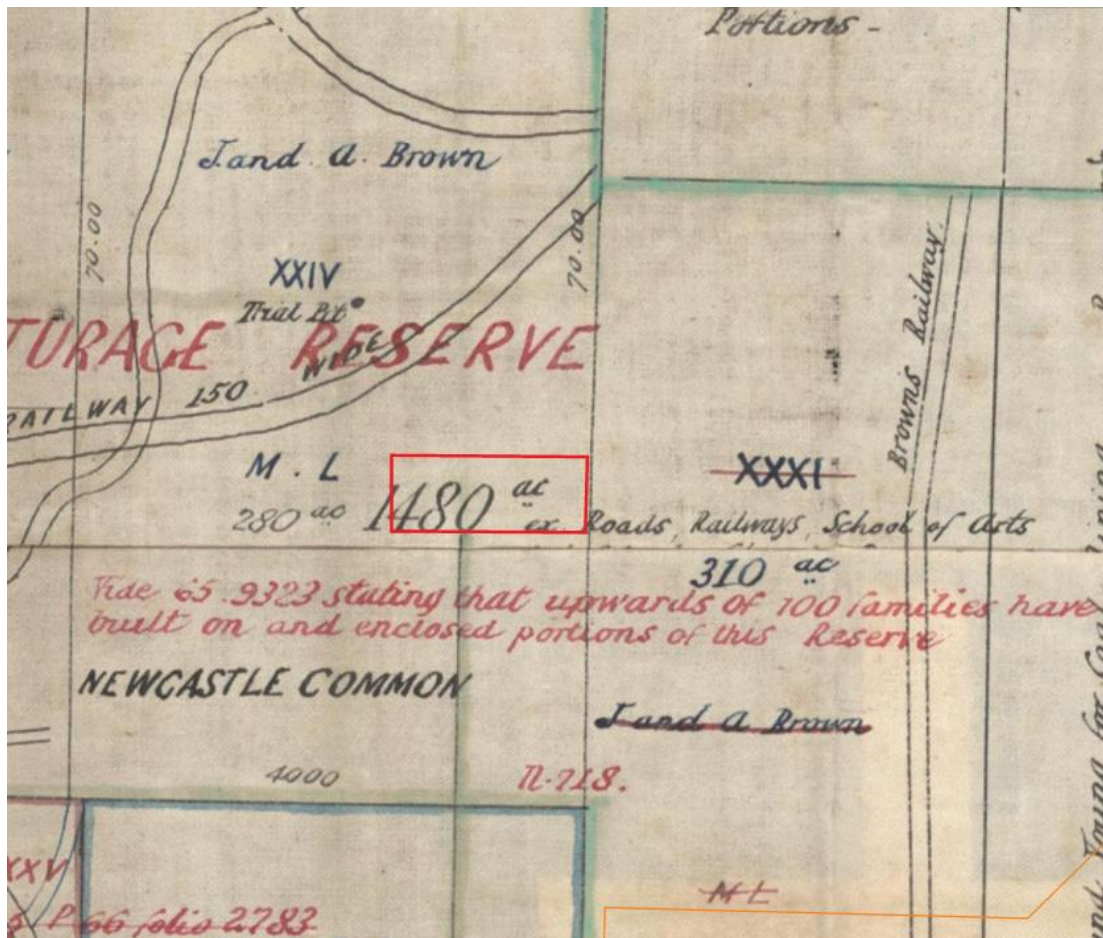 Portions -
J. and. A. Brown
70.00
70.00
XXIV
Trial Pit
TURAGE RESERVE
RAILWAY 150. WIDE
Brown's Railway
M. L
280 ac 1480 ac
ex. Roads, Railways, School of Arts
XXXI
310 ac
Vide 65.9323 stating that upwards of 100 families have
built on and enclosed portions of this Reserve
NEWCASTLE COMMON
J and A Brown
4000
718.
XXV
P 66 folio 2783
M L
Young for